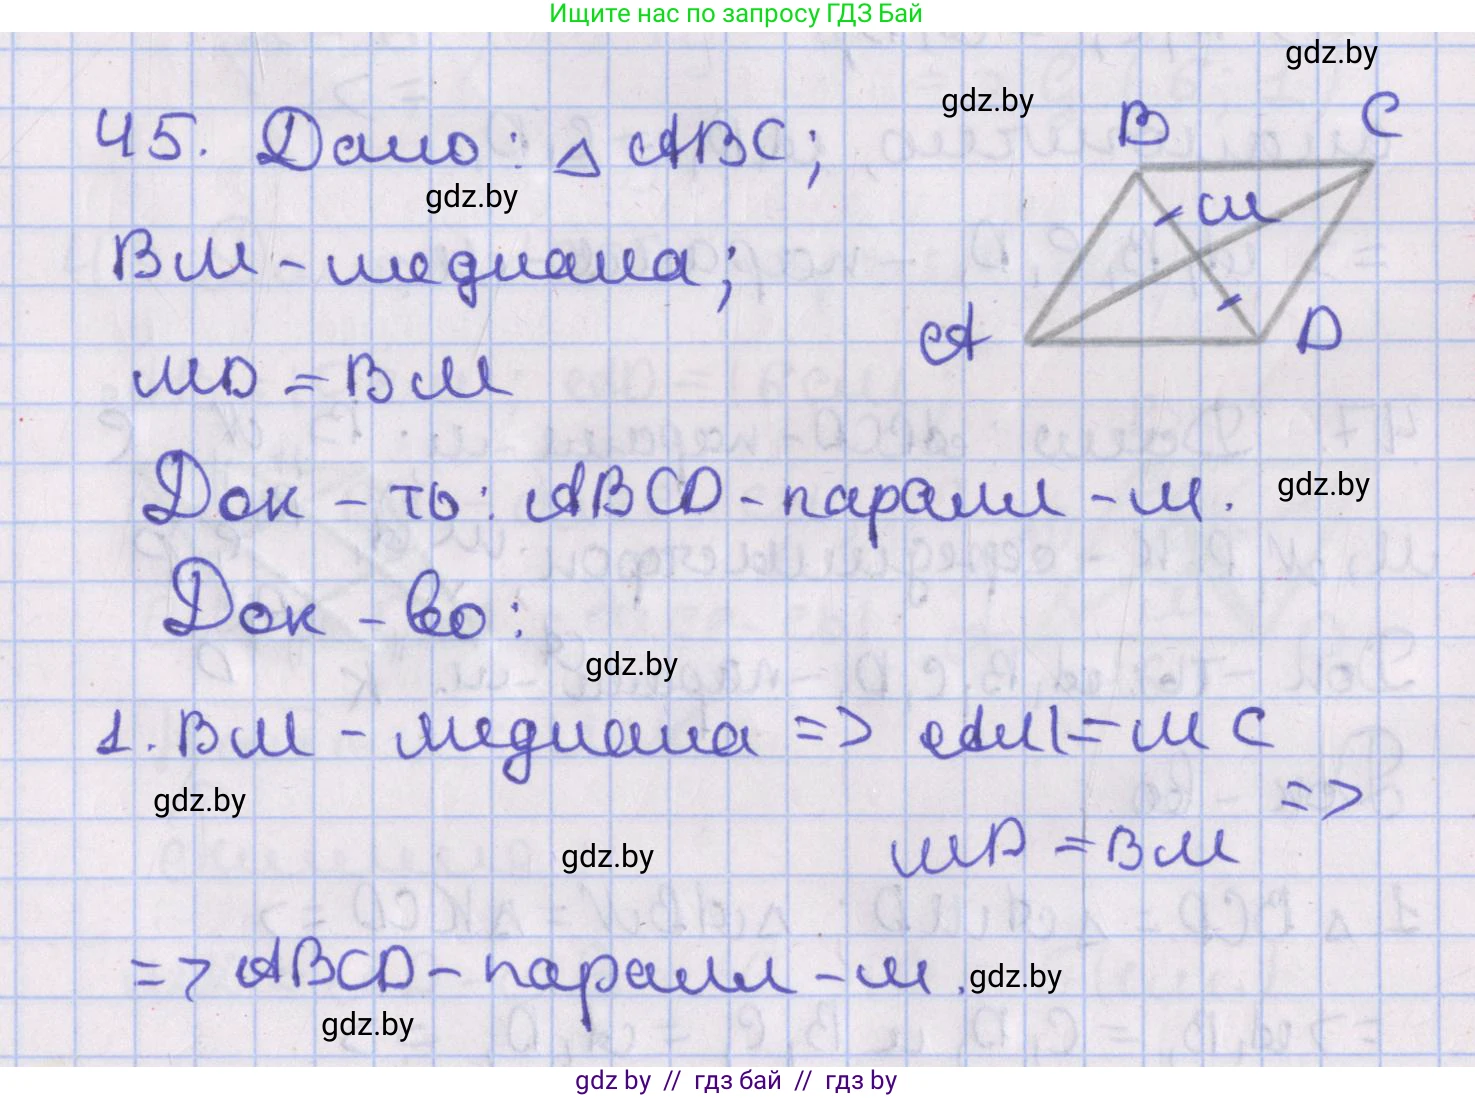 Ищите нас по запросу ГДЗ Бай
gdz.by
gdz.by
B C
45. Дано: △ ABC;
gdz.by
M
BM - медиана;
A D
MD = BM
Док - ть: ABCD - паралл - м.
gdz.by
Док - во:
gdz.by
1. BM - медиана => AM = MC
gdz.by
=>
gdz.by
MD = BM
=> ABCD - паралл - м.
gdz.by
gdz.by
gdz by // гдз бай // гдз by